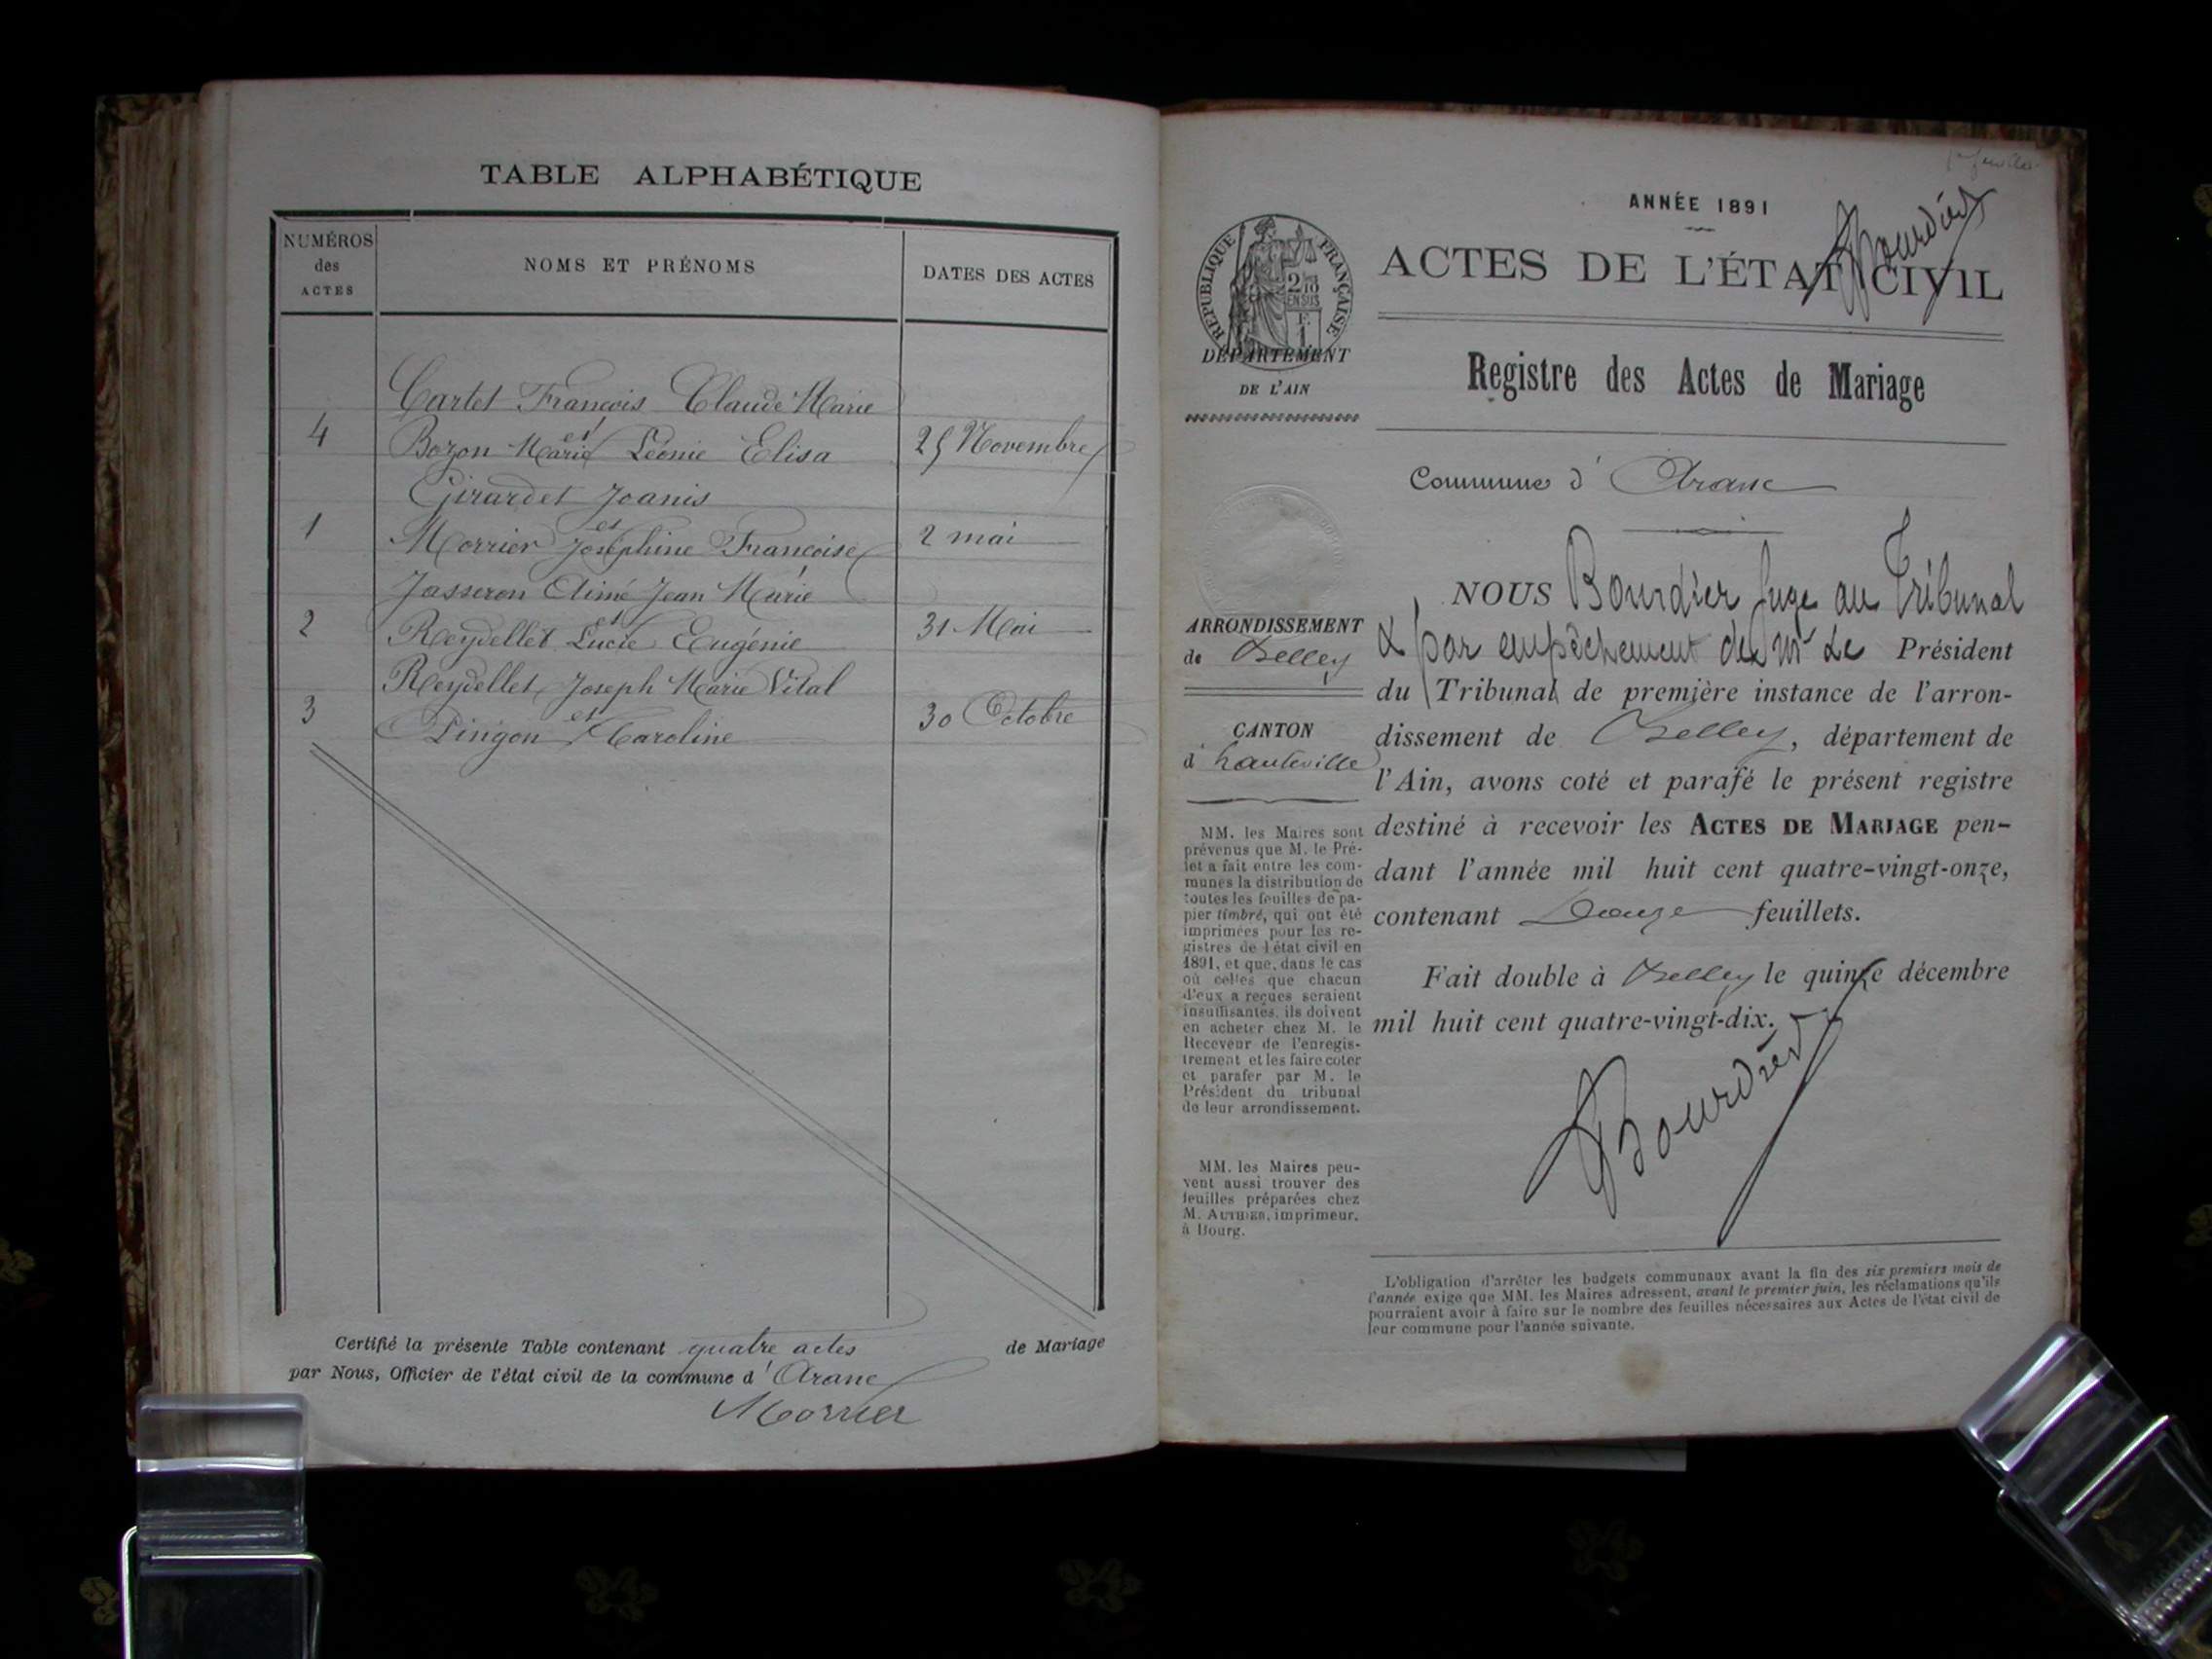 TABLE ALPHABÉTIQUE
NUMÉROS
des
ACTES
NOMS ET PRÉNOMS
DATES DES ACTES
Cartet François Claude Marie
et
4 Bozon Marie Léonie Elisa 25 Novembre
Girardet Joanis
et
1 Morrier Joséphine Françoise 2 mai
Jasseron Aimé Jean Marie
et
2 Reydellet Lucie Eugénie 31 Mai
Reydellet Joseph Marie Vital
et
3 Pingon Caroline 30 Octobre
Certifié la présente Table contenant quatre actes de Mariage
par Nous, Officier de l'état civil de la commune d' Aranc
Morrier
ANNÉE 1891
Bourdier
ACTES DE L'ÉTAT CIVIL
RÉPUBLIQUE FRANÇAISE
2/10
EN SUS
F.
1
DÉPARTEMENT
DE L'AIN
Registre des Actes de Mariage
Commune d' Aranc
ARRONDISSEMENT
de Belley
CANTON
d' hauteville
MM. les Maires sont
prévenus que M. le Pré-
fet a fait entre les com-
munes la distribution de
toutes les feuilles de pa-
pier timbré, qui ont été
imprimées pour les re-
gistres de l'état civil en
1891, et que, dans le cas
où celles que chacun
d'eux a reçues seraient
insuffisantes, ils doivent
en acheter chez M. le
Receveur de l'enregis-
trement et les faire coter
et parafer par M. le
Président du tribunal
de leur arrondissement.
MM. les Maires peu-
vent aussi trouver des
feuilles préparées chez
M. AUTHIER, imprimeur,
à Bourg.
NOUS Bourdier Juge au Tribunal
& par empêchement de Mr Le Président
du Tribunal de première instance de l'arron-
dissement de Belley, département de
l'Ain, avons coté et parafé le présent registre
destiné à recevoir les ACTES DE MARIAGE pen-
dant l'année mil huit cent quatre-vingt-onze,
contenant Douze feuillets.
Fait double à Belley le quinze décembre
mil huit cent quatre-vingt-dix.
Bourdier
L'obligation d'arrêter les budgets communaux avant la fin des six premiers mois de
l'année exige que MM. les Maires adressent, avant le premier juin, les réclamations qu'ils
pourraient avoir à faire sur le nombre des feuilles nécessaires aux Actes de l'état civil de
leur commune pour l'année suivante.